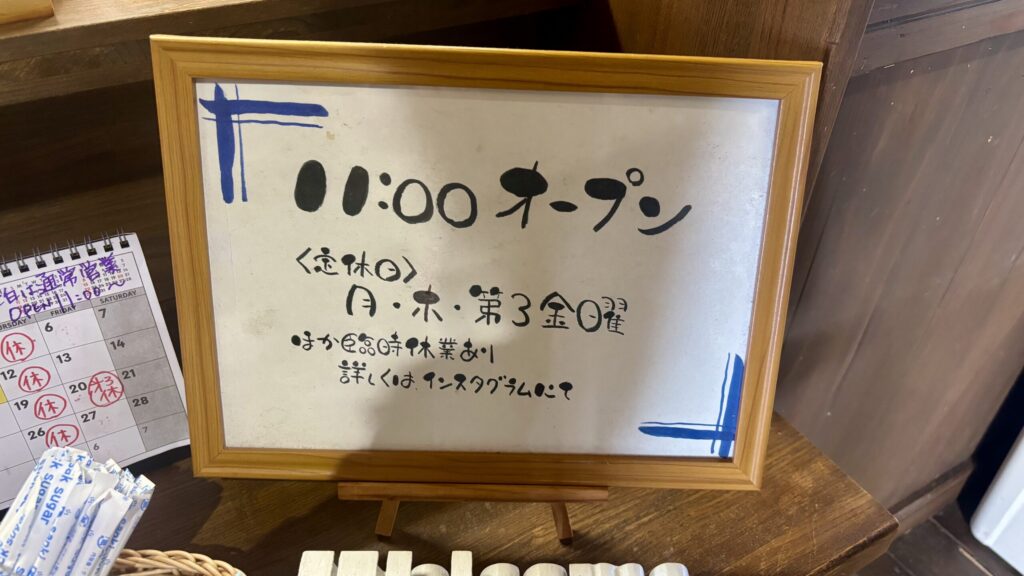 11:00 オープン
〈定休日〉
月・木・第3金曜
ほか臨時休業あり
詳しくは、インスタグラムにて
通常営業
OPEN 11:00
FRIDAY SATURDAY
休 6 7
12 休 13 14
19 休 20 休 21
26 休 27 28
sugar
Welcome